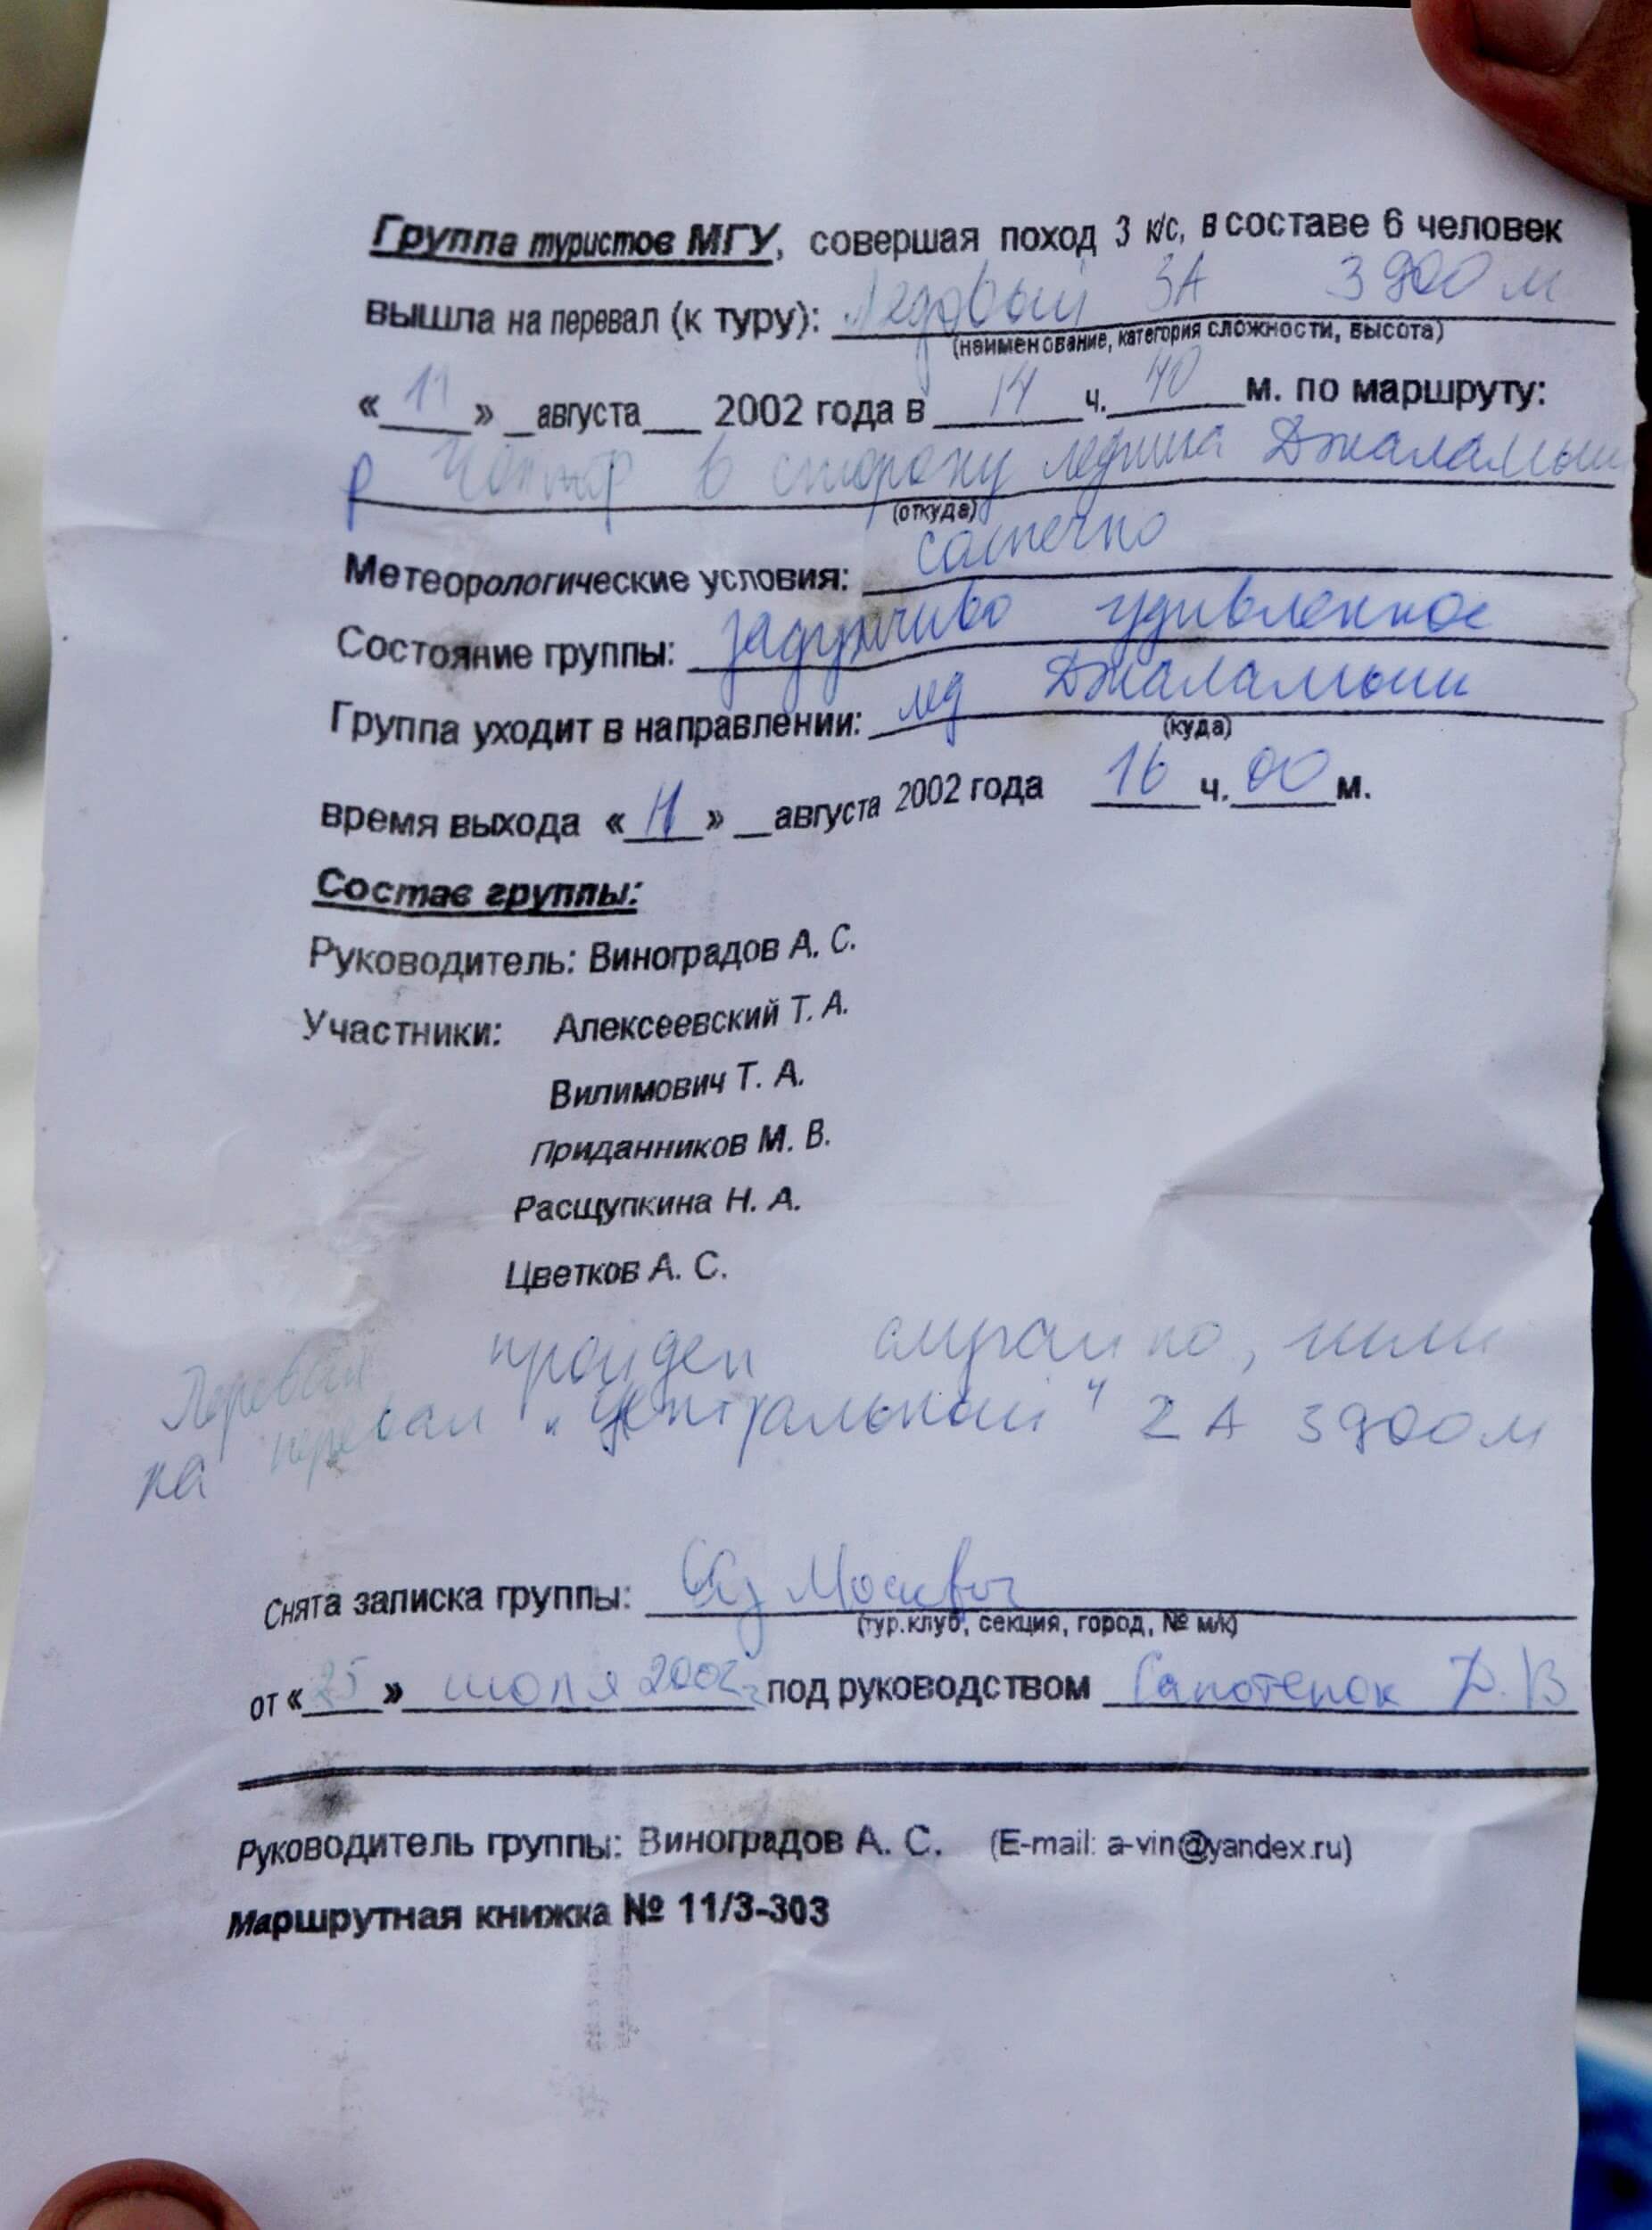 Группа туристов МГУ, совершая поход 3 к/с, в составе 6 человек
вышла на перевал (к туру): Ледовый 3А 3900 м
(наименование, категория сложности, высота)
«11» _августа___ 2002 года в 14 ч. 40 м. по маршруту:
р в сторону ледника Джаламыш
(откуда)
Метеорологические условия: солнечно
Состояние группы: задумчиво удивленное
Группа уходит в направлении: лед Джаламыш
(куда)
время выхода «11» _августа 2002 года 16 ч. 00 м.
Состав группы:
Руководитель: Виноградов А. С.
Участники: Алексеевский Т. А.
Вилимович Т. А.
Приданников М. В.
Расщупкина Н. А.
Цветков А. С.
Перевал пройден случайно, шли
на перевал "Центральный" 2А 3900 м
Снята записка группы: Москвы
(тур.клуб, секция, город, № м/к)
от «25» июля 2002 г. под руководством Сапотенок Д. В
Руководитель группы: Виноградов А. С. (E-mail: a-vin@yandex.ru)
Маршрутная книжка № 11/3-303